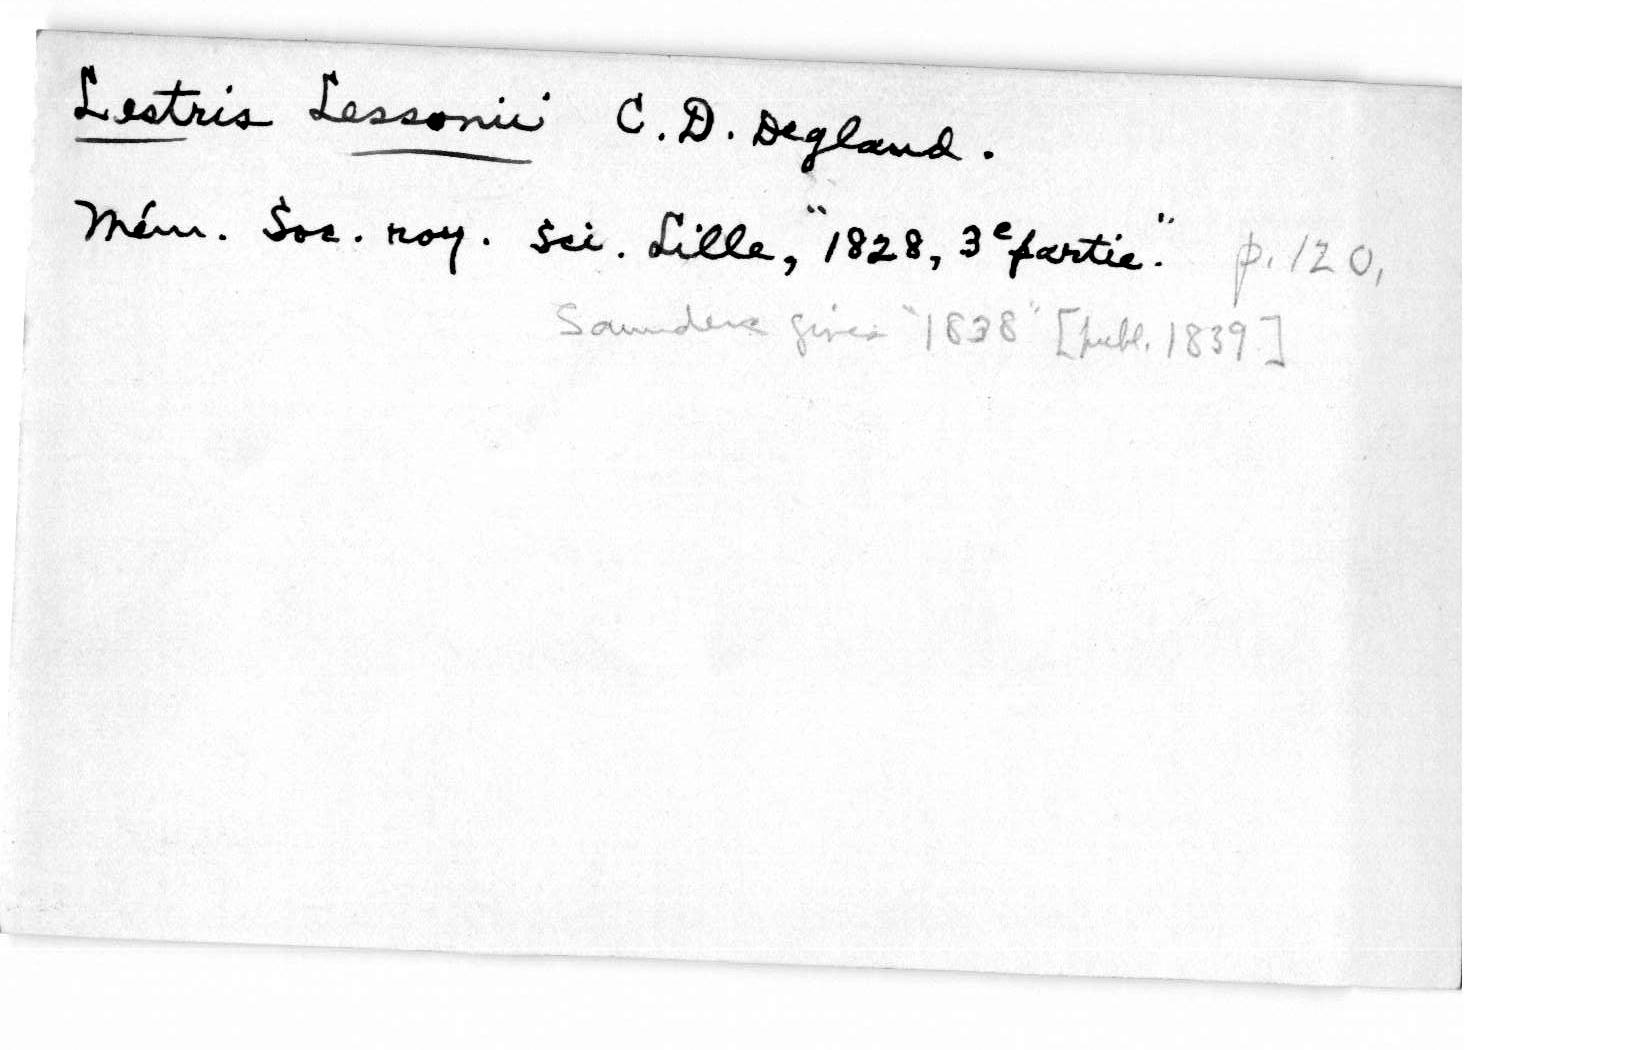 Lestris Lessonii C. D. Degland.
Mém. Soc. roy. sci. Lille, "1828, 3e partie." p. 120,
Saunders gives "1838" [publ. 1839]